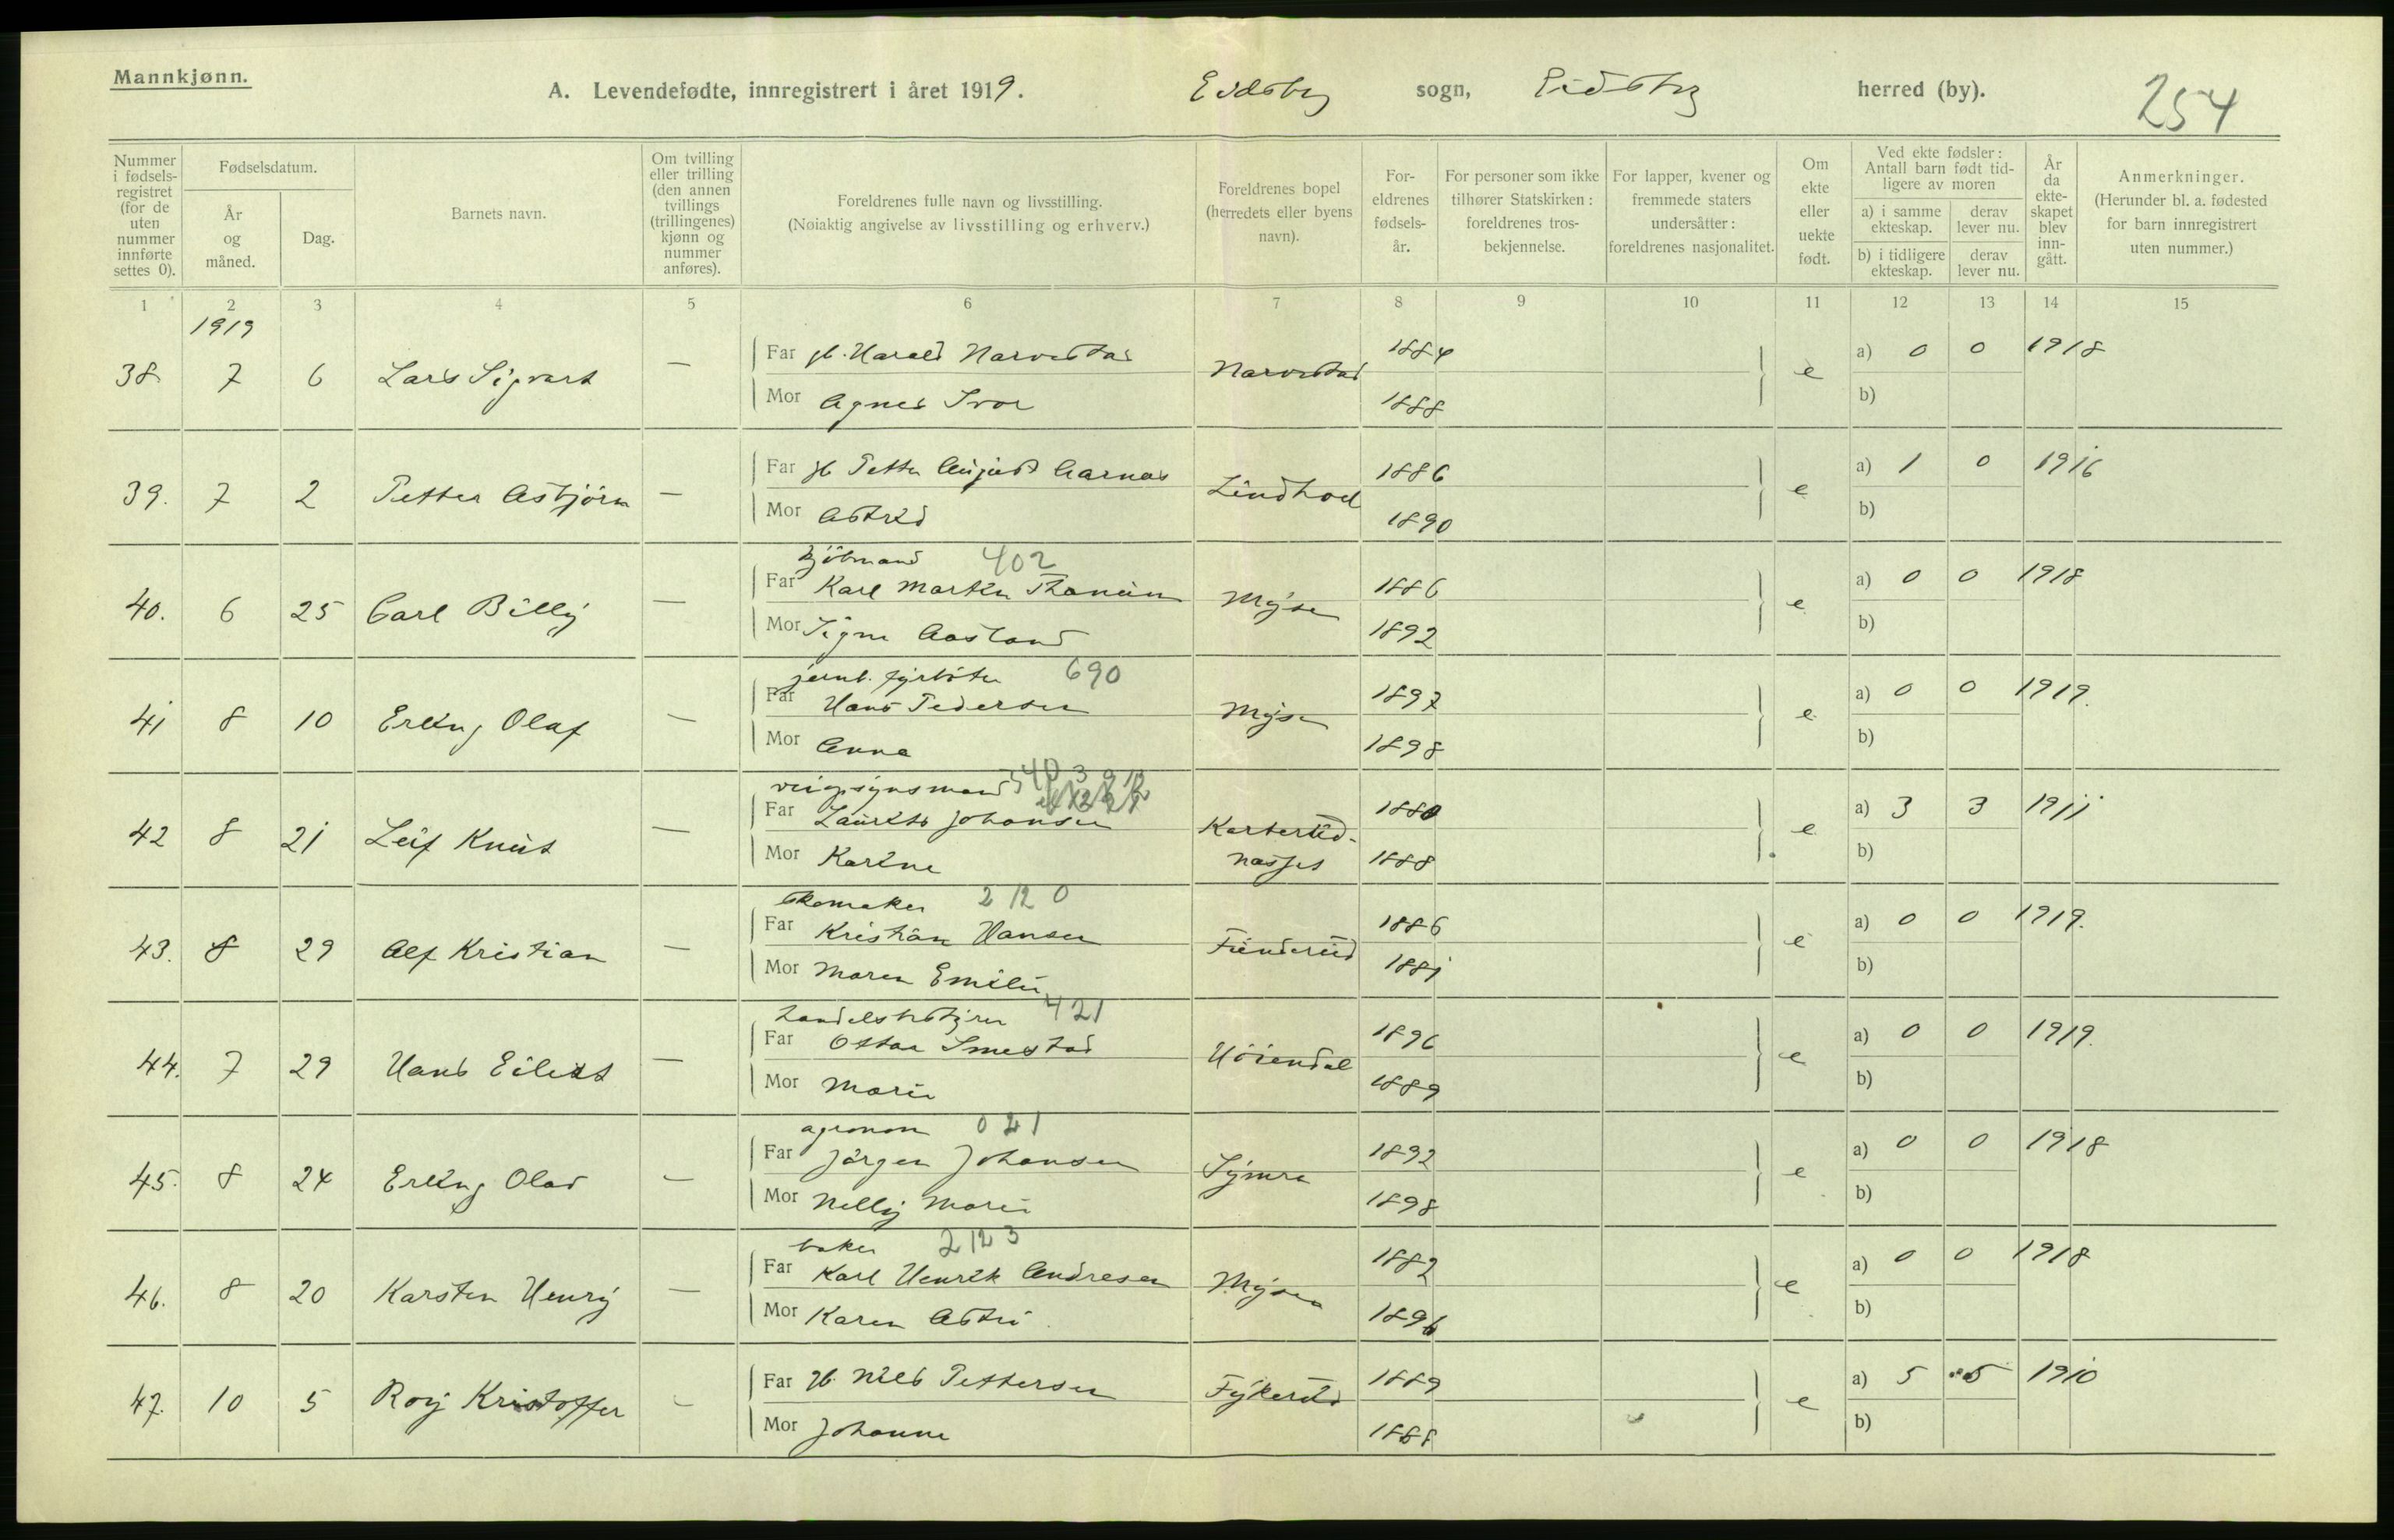 Mannkjønn.
A. Levendefødte, innregistrert i året 1919. Eidsberg sogn, Eidsberg herred (by).
254
Nummer i fødsels-registret (for de uten nummer innførte settes 0).
Fødselsdatum.
År og måned.
Dag.
Barnets navn.
Om tvilling eller trilling (den annen tvillings (trillingenes) kjønn og nummer anføres).
Foreldrenes fulle navn og livsstilling.
(Nøiaktig angivelse av livsstilling og erhverv.)
Foreldrenes bopel (herredets eller byens navn).
For-eldrenes fødsels-år.
For personer som ikke tilhører Statskirken: foreldrenes tros-bekjennelse.
For lapper, kvener og fremmede staters undersåtter: foreldrenes nasjonalitet.
Om ekte eller uekte født.
Ved ekte fødsler: Antall barn født tid-ligere av moren
a) i samme ekteskap.
derav lever nu.
b) i tidligere ekteskap.
derav lever nu.
År da ekte-skapet blev inn-gått.
Anmerkninger.
(Herunder bl. a. fødested for barn innregistrert uten nummer.)
1 2 3 4 5 6 7 8 9 10 11 12 13 14 15
1919
38. 7 6 Lars Sigvart — Far gb. Harald Narvestad Narvestad 1884 e a) 0 0 1918
Mor Agnes 1888 b)
39. 7 2 Petter Asbjörn — Far gb Petter August Lindhol 1886 e a) 1 0 1916
Mor Astrid 1890 b)
kjöbmand 402
40. 6 25 Carl Billy — Far Karl Martin Mysen 1886 e a) 0 0 1918
Mor Signe Aasland 1892 b)
jernb. fyrböter 690
41 8 10 Erling Olaf — Far Hans Pedersen Mysen 1897 e a) 0 0 1919.
Mor Anna 1898 b)
veiopsynsmand
42 8 21 Leif Knut — Far Laurits Johansen Karterud- 1880 e a) 3 3 1911
Mor Karine næsset 1888 b)
Skomaker 2 12 0
43. 8 29 Alf Kristian — Far Kristian Hansen Funderud 1886 e a) 0 0 1919.
Mor Maren Emilie 1881 b)
handelsbestyrer 421
44. 7 29 Hans Eilert — Far Ottar Smestad Höiendal 1896 e a) 0 0 1919.
Mor Marie 1889 b)
agronom 021
45. 8 24 Erling Olav — Far Jörgen Johansen Symra 1892 e a) 0 0 1918
Mor Nelly Marie 1898 b)
baker 2 12 3
46. 8 20 Karsten Henry — Far Karl Henrik Andresen Mysen 1882 e a) 0 0 1918
Mor Karen Astri 1896 b)
47. 10 5 Roy Kristoffer — Far gb. Nils Pettersen Fykerud 1889 e a) 5 5 1910
Mor Johanne 1888 b)